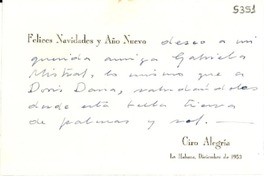 5351
Felices Navidades y Año Nuevo deseo a mi
querida amiga Gabriela
Mistral, lo mismo que a
Doris Dana, saludándolas
desde esta bella tierra
de palmas y sol. —
Ciro Alegría
La Habana, Diciembre de 1953